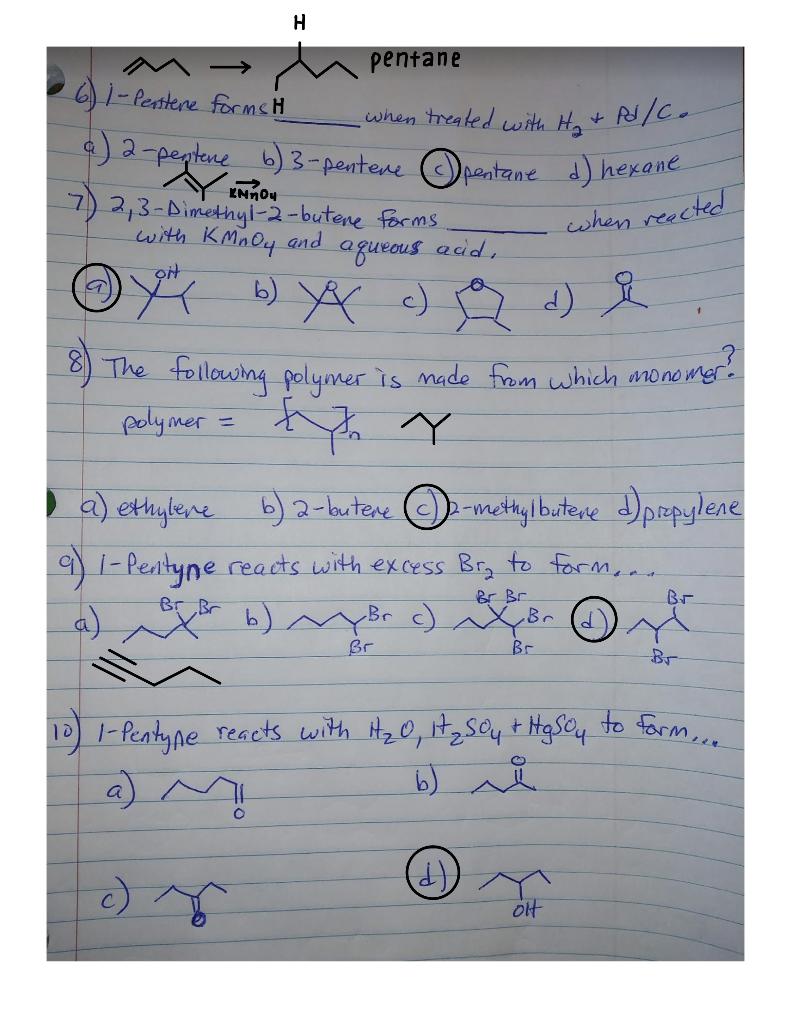 H
pentane
6) 1-Pentene forms H ______ when treated with H2 + Pd/C.
a) 2-pentene b) 3-pentene c) pentane d) hexane
KMnO4
7) 2,3-Dimethyl-2-butene forms ______ when reacted
with KMnO4 and aqueous acid.
a) OH b) O c) O d) O
8) The following polymer is made from which monomer?
polymer = [ ]n
a) ethylene b) 2-butene c) 2-methylbutene d) propylene
9) 1-Pentyne reacts with excess Br2 to form...
a) Br Br b) Br Br c) Br Br Br Br d) Br Br
10) 1-Pentyne reacts with H2O, H2SO4 + HgSO4 to form...
a) O b) O
c) O d) OH